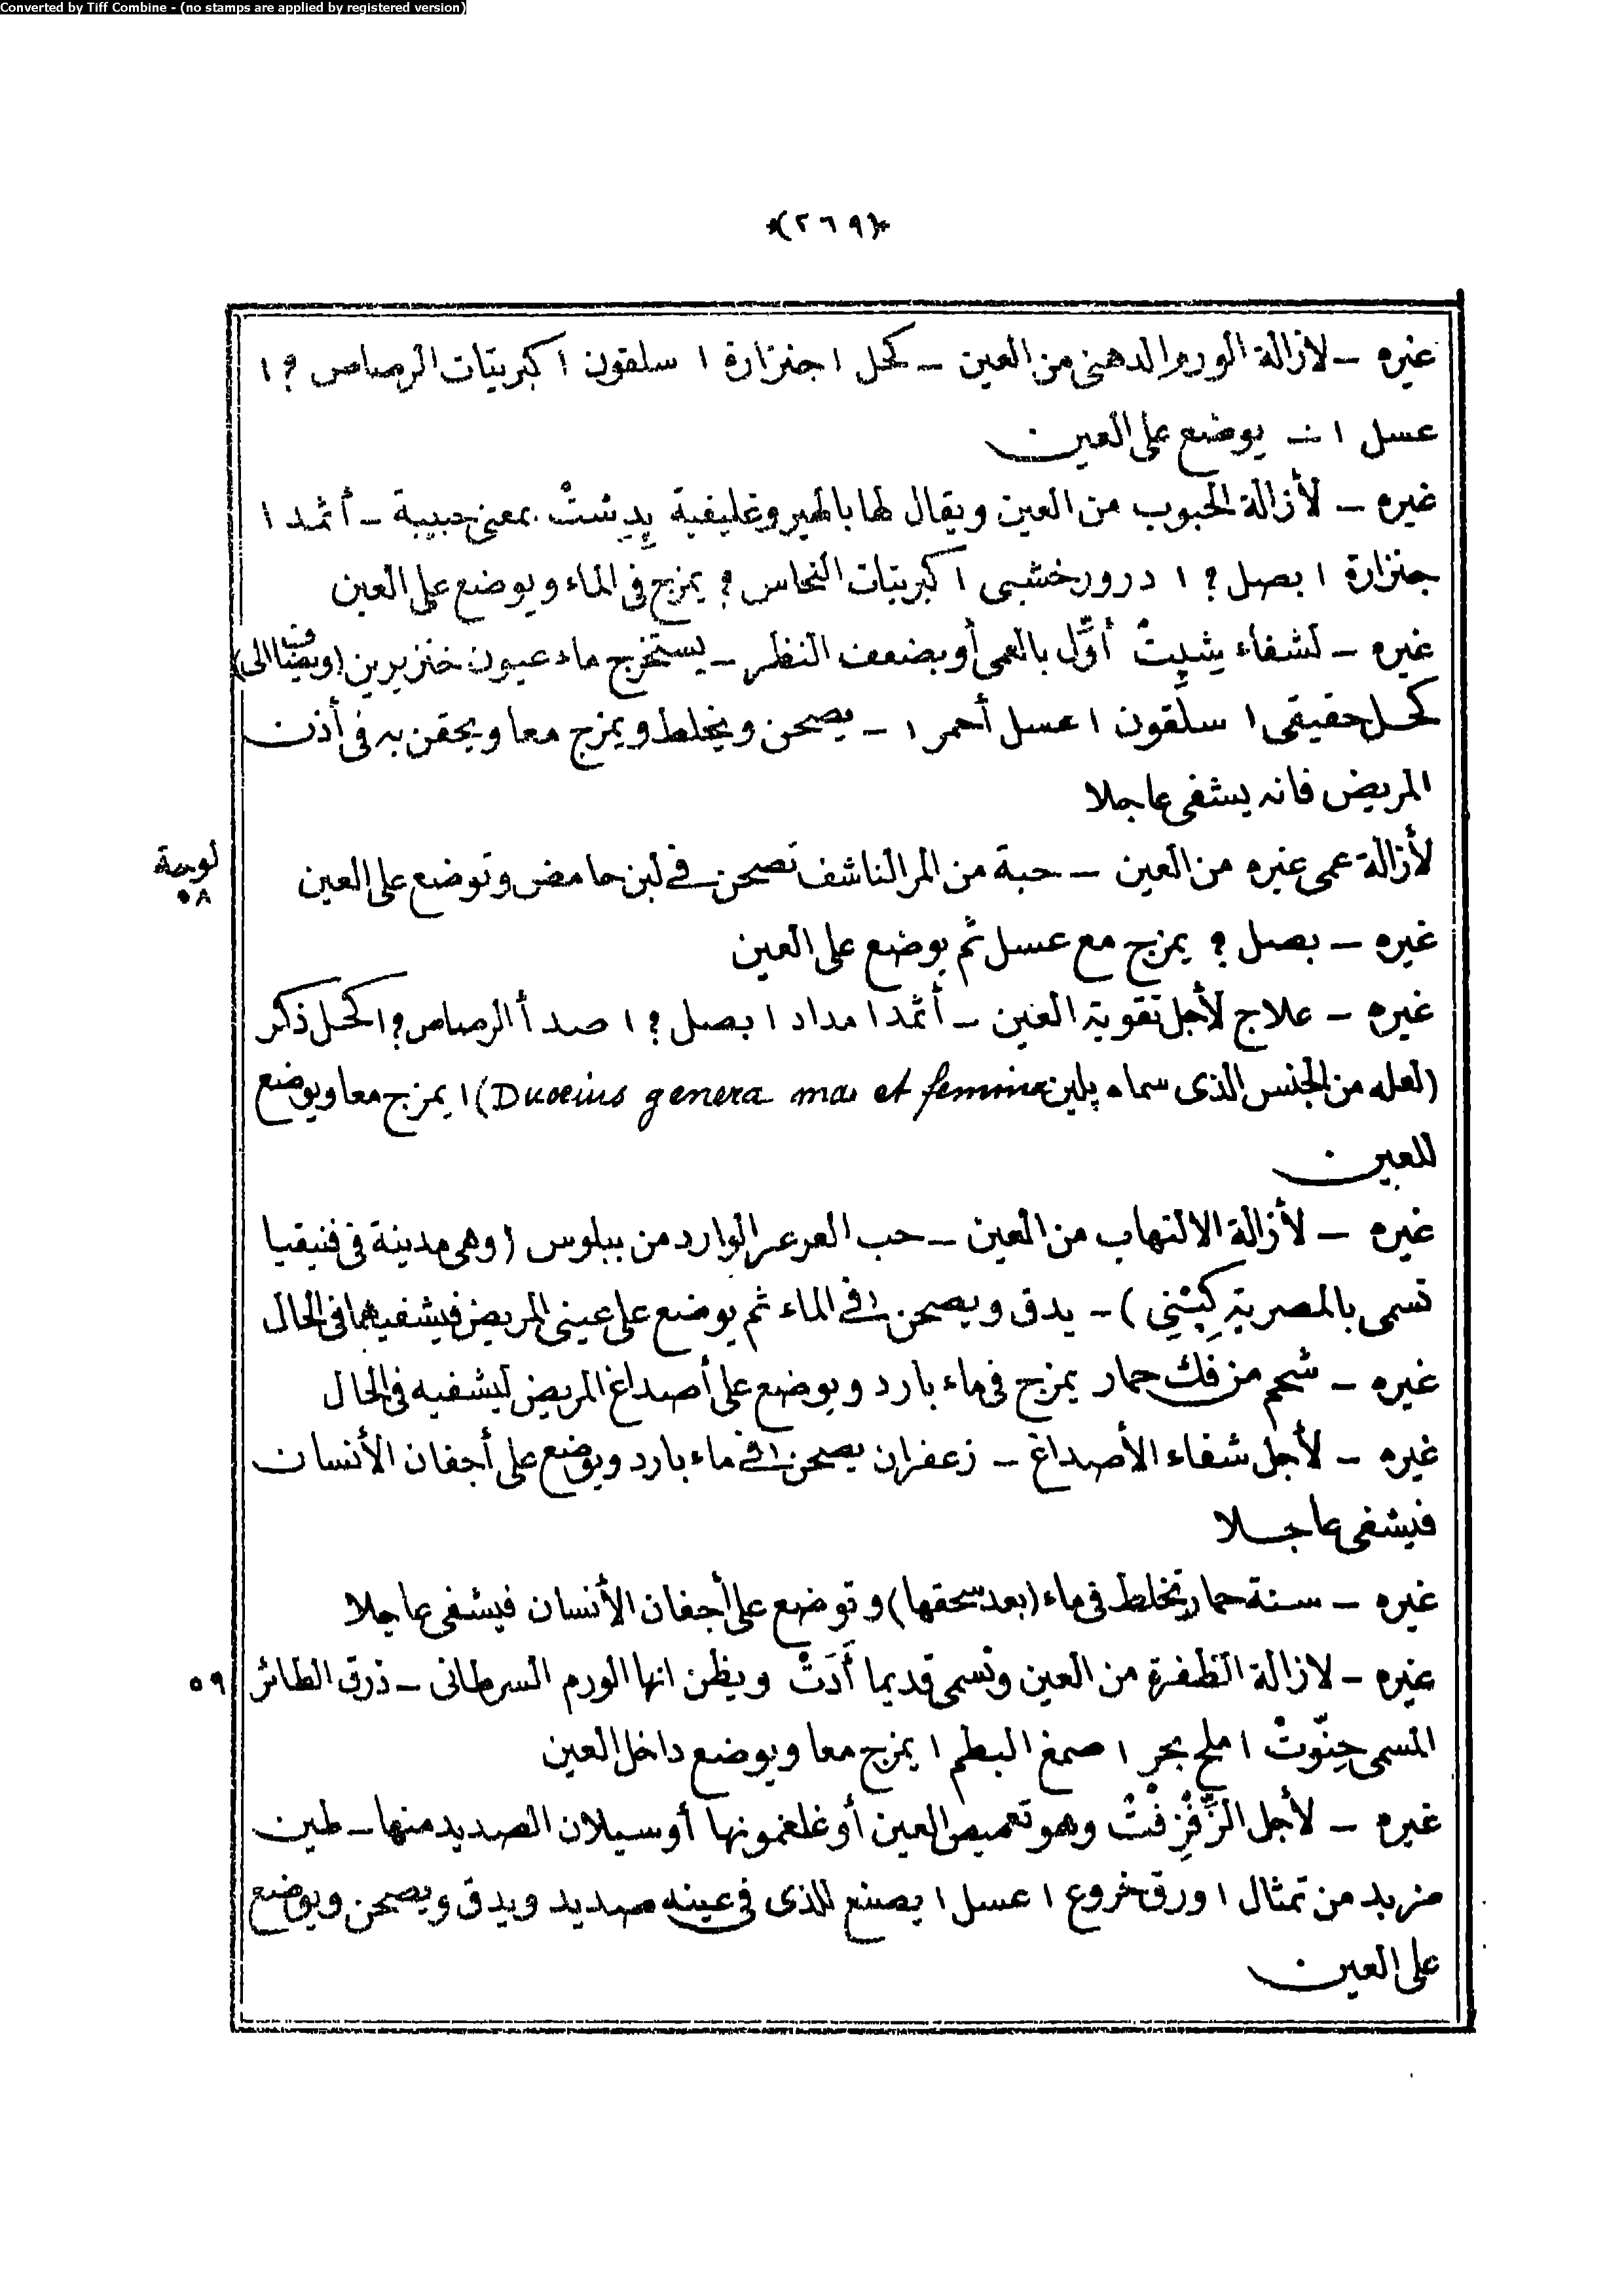 Converted by Tiff Combine - (no stamps are applied by registered version)
*(٢٦٩)*
غيره – لازالة الورم الدهنى من العين – كحل ١ جنزارة ١ سلقون ١ كبريتات الرصاص ? ١
عسل ١ يوضع على العين
غيره – لأزالة الحبوب من العين ويقال لها بالهيروغليفية پدِشتْ بمعنى حبيبة – أثمد ١
جنزارة ١ بصل ? ١ درور خشبى ١ كبريتات النحاس ? يمزج فى الماء ويوضع على العين
غيره – لشفاء أوّل بالعمى أو بضعف النظر – يستخرج ماء عيون خنزيرين (ويضاف الى)
كحل حقيقى ١ سلقون ١ عسل أحمر ١ – يصحن ويخلط ويمزج معا ويحقن به فى أذن
المريض فانه يشفى عاجلا
لوحة ٥٨
لأزالة عمى غيره من العين – حبة من المر الناشف تصحن فى لبن حامض وتوضع على العين
غيره – بصل ? يمزج مع عسل ثم يوضع على العين
غيره – علاج لأجل تقوية العين – أثمد ١ مداد ١ بصل ? ١ صدأ الرصاص ? ١ كحل ذكر
(لعله من الجنس الذى سماه پلين Duoeius genera mas et femina) ١ يمزج معا ويوضع
للعين
غيره – لأزالة الالتهاب من العين – حب العرعر الوارد من ببلوس (وهى مدينة فى فنيقيا
تسمى بالمصرية كِپْنِى) – يدق ويصحن فى الماء ثم يوضع على عينى المريض فيشفيهما فى الحال
غيره – شحم من فك حمار يمزج فى ماء بارد ويوضع على أصداغ المريض ليشفيه فى الحال
غيره – لأجل شفاء الأصداغ – زعفران يصحن فى ماء بارد ويوضع على أجفان الأنسان
فيشفى عاجلا
غيره – سنة حمار تخلط فى ماء (بعد سحقها) وتوضع على أجفان الأنسان فيشفى عاجلا
٥٩
غيره – لازالة الظفرة من العين وتسمى قديما أَدَتْ ويظن انها الورم السرطانى – ذرق الطائر
المسمى حِنّوتْ ١ ملح بحر ١ صمغ البطم ١ يمزج معا ويوضع داخل العين
غيره – لأجل وهو تعميص العين أو غلغمونها أو سيلان الصديد منها – طين
مزبد من تمثال ١ ورق خروع ١ عسل ١ يصنع للذى فى عينه صديد ويدق ويصحن ويوضع
على العين